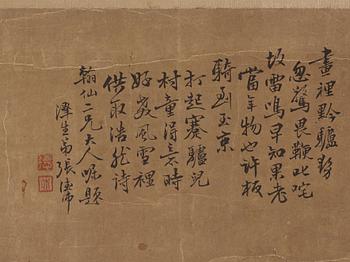 畫裡黔驢勢
忽驚畏鞭叱咤
故雷鳴早知果老
當年物也許扳
騎到玉京
打起蹇驢兒
村童得意時
好風雪裡
供取浩然詩
翰仙二兄大人囑題
澤生弟張